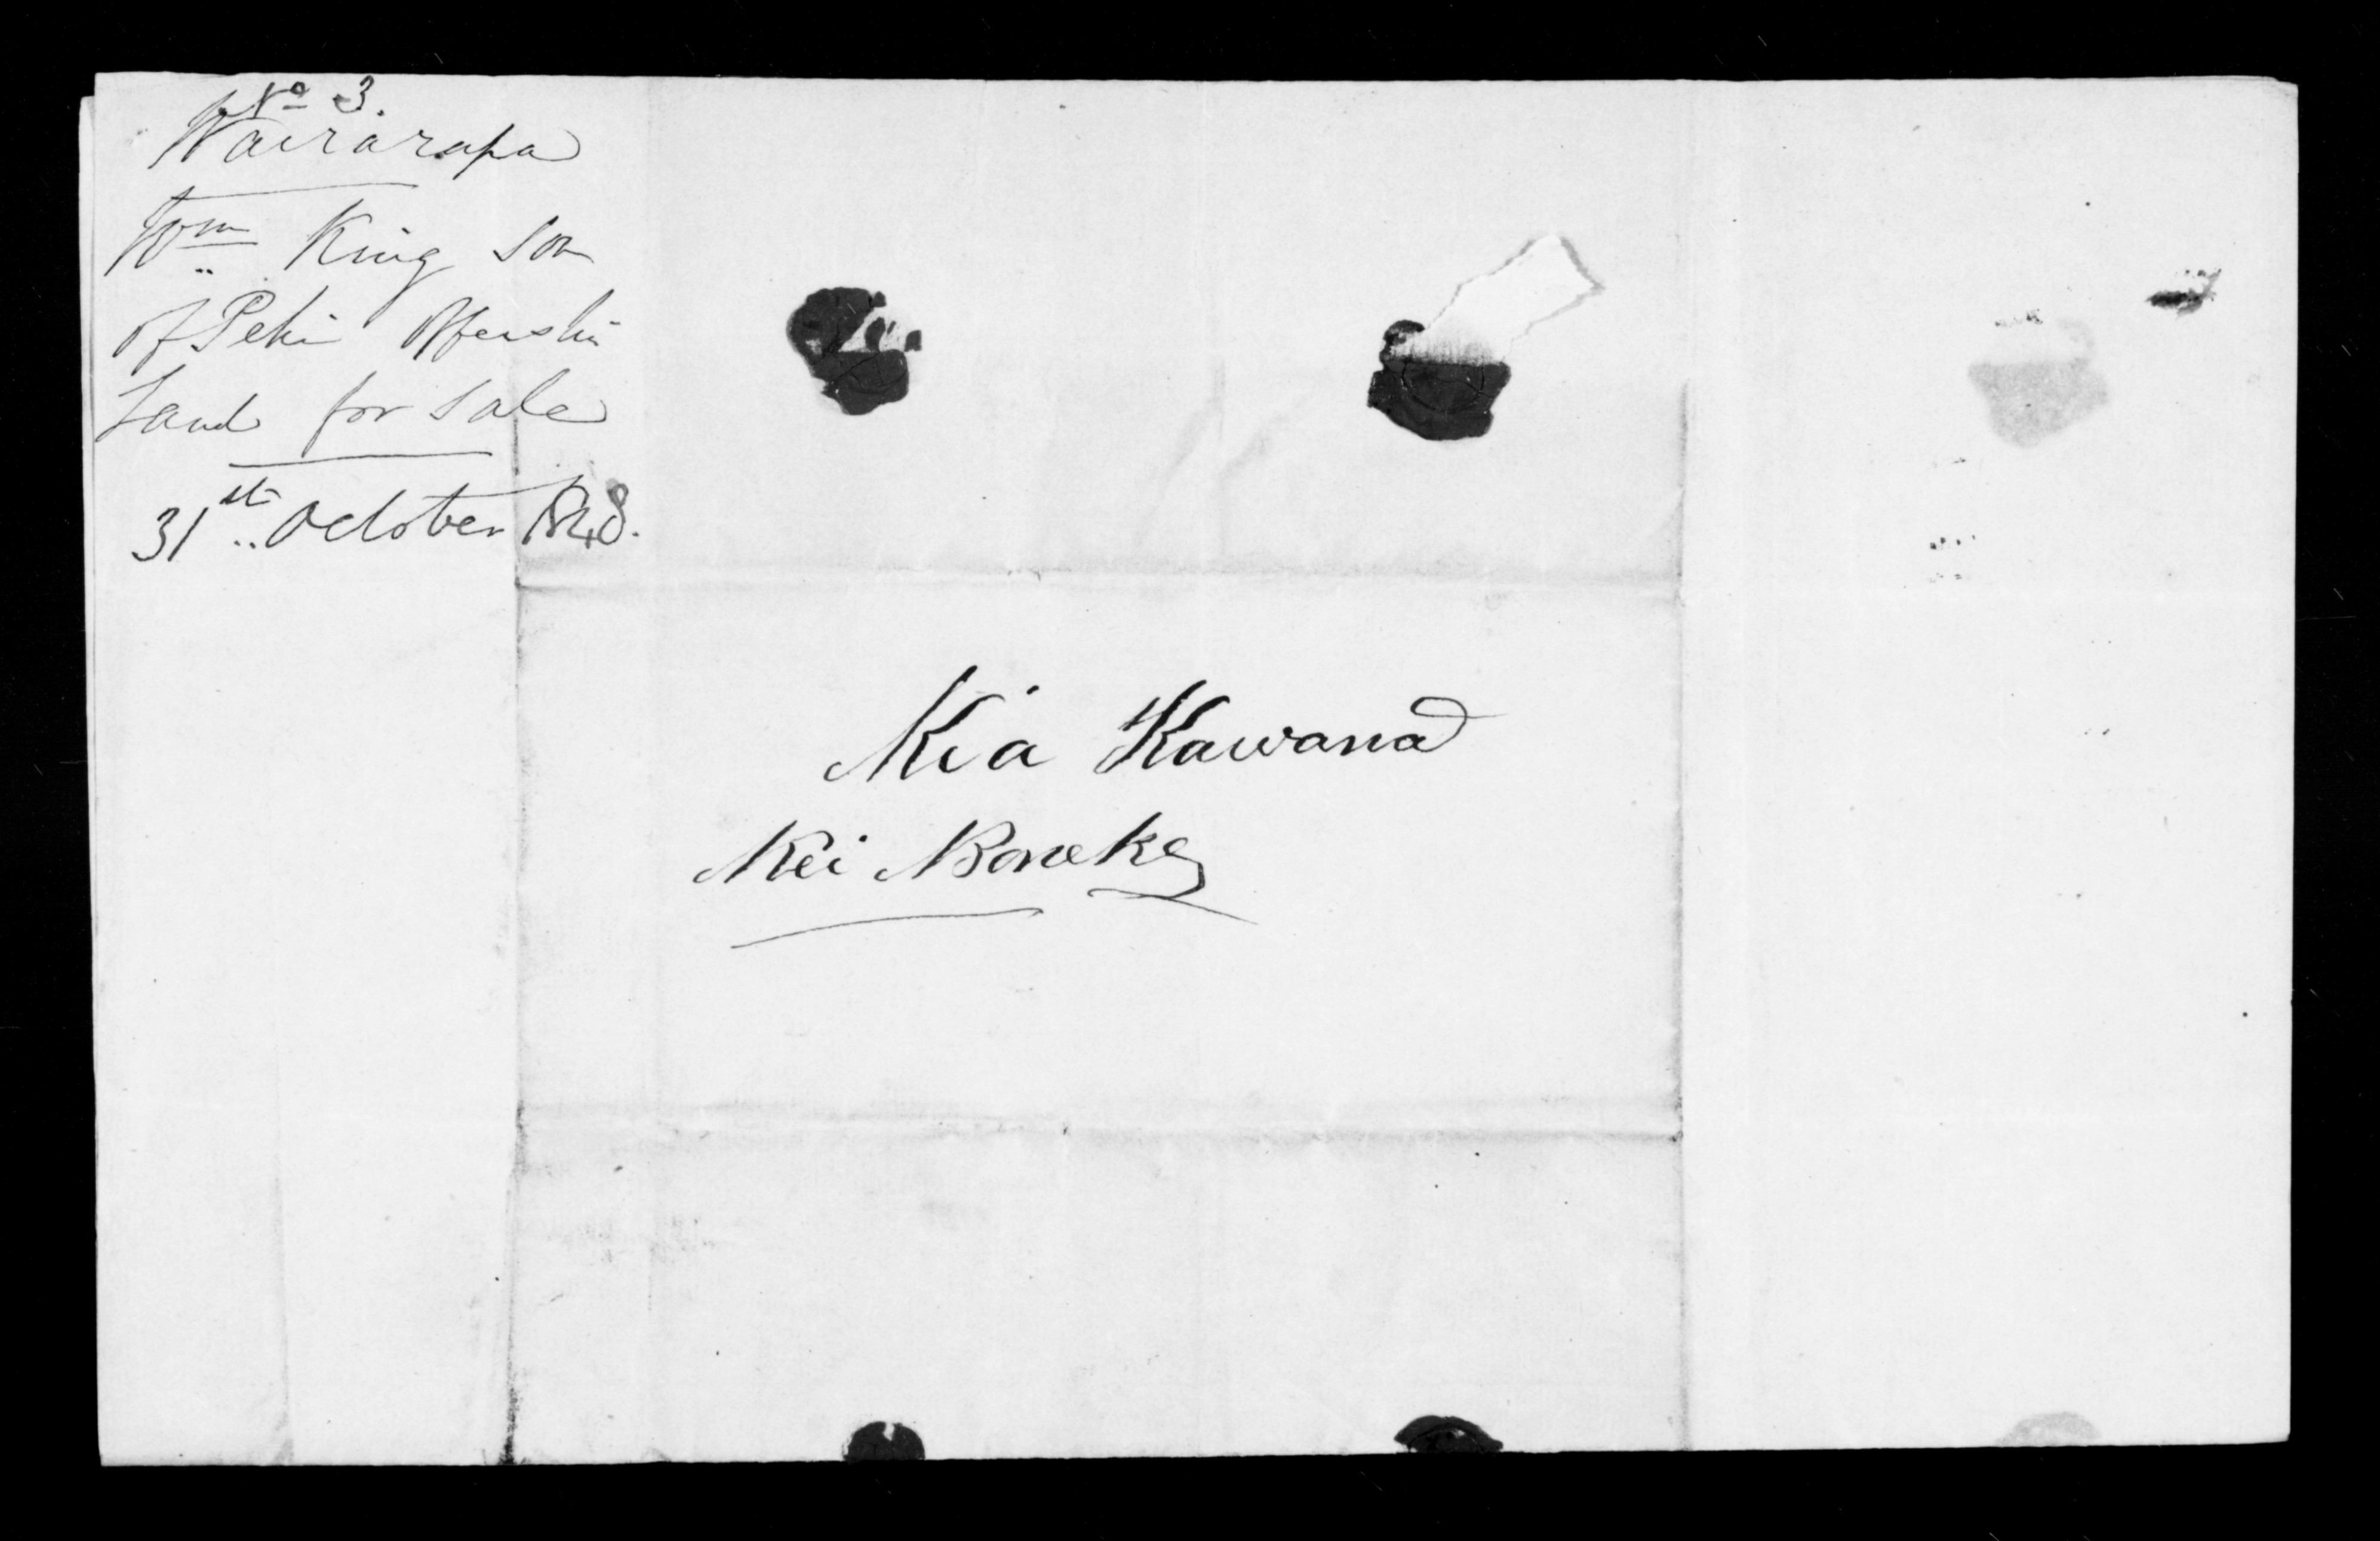 No 3.
Wairarapa
Wm King son
of Pehi offers his
Land for sale
31st October 1848.
Kia Kawana
Kei Poneke